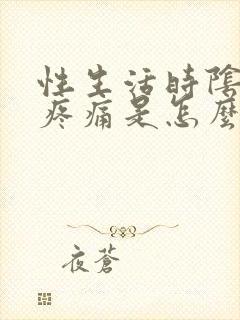 性生活時陰
疼痛是怎麼
夜蒼